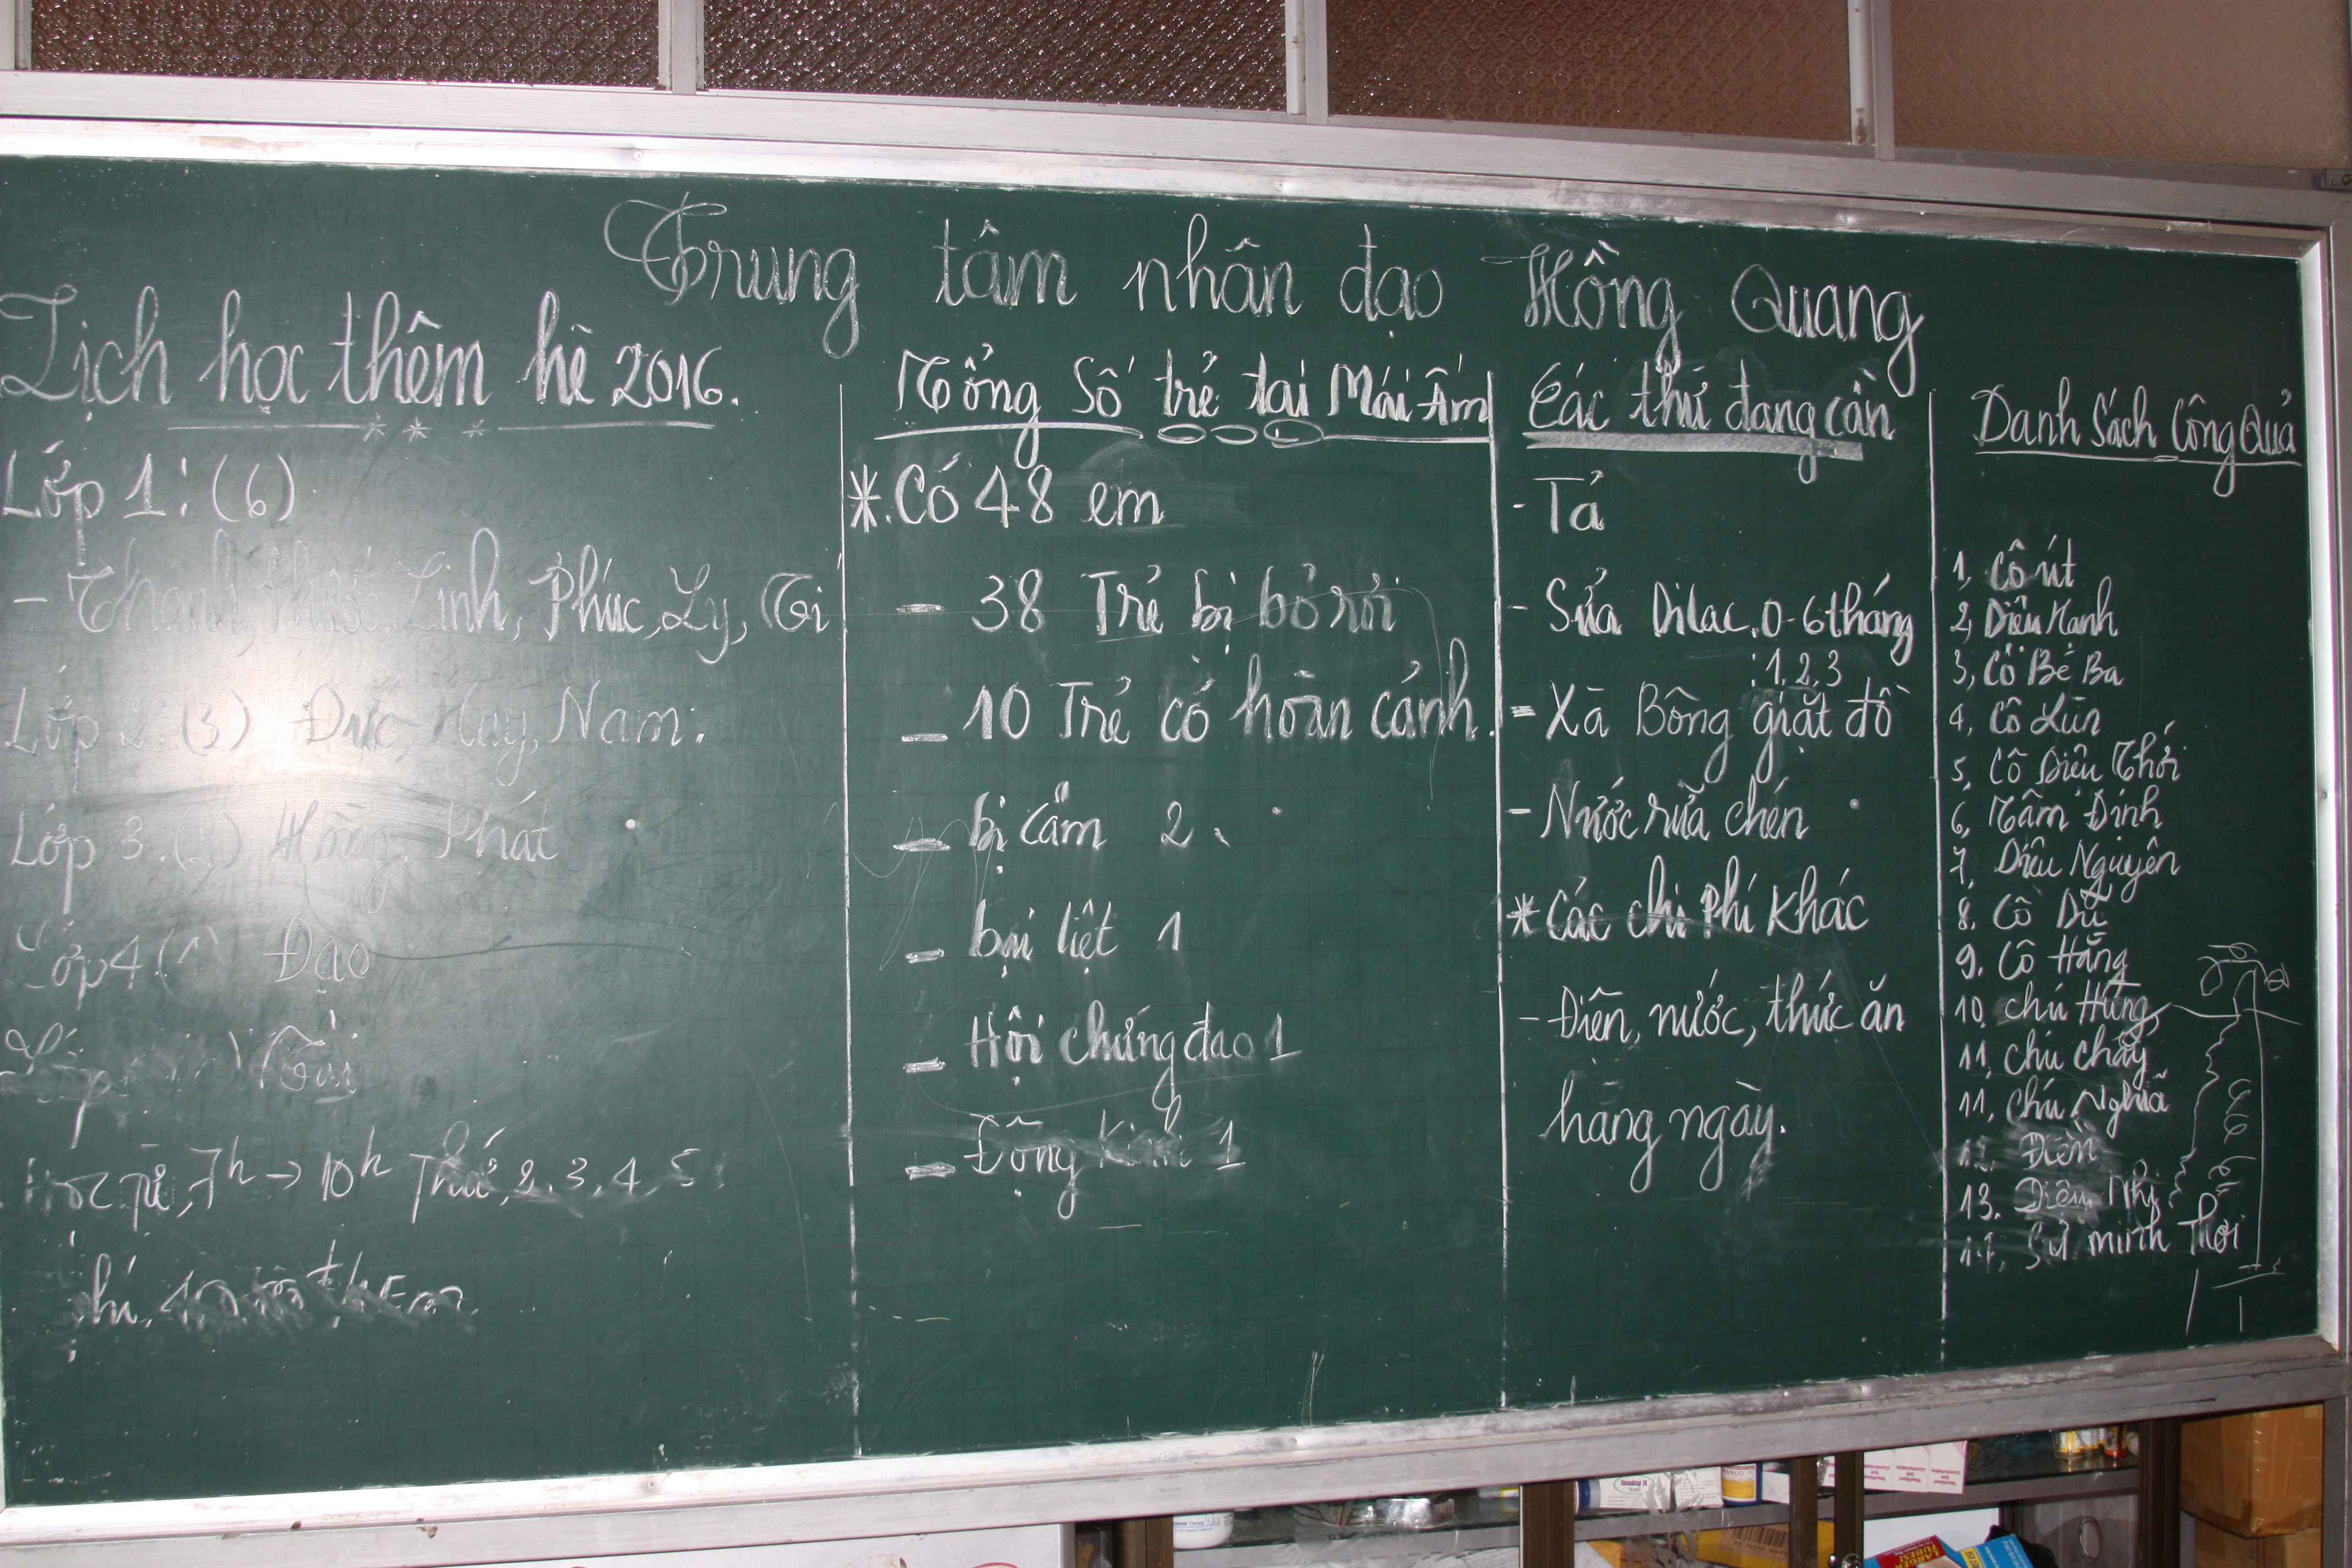 Trung tâm nhân đạo Hồng Quang
Lịch học thêm hè 2016.
Lớp 1: (6)
- Thanh, Linh, Phúc, Ly, Ti
Lớp 2. (3) Đức, Huy, Nam.
Lớp 3. (2) Hồng, Phát
Lớp 4 Đạo
Lớp
Học từ, 7h → 10h Thứ, 2, 3, 4, 5
Tổng Số trẻ tại Mái Ấm
*. Có 48 em
- 38 Trẻ bị bỏ rơi
- 10 Trẻ có hoàn cảnh.
- bị câm 2
- bại liệt 1
- Hội chứng đao 1
- Động kinh 1
Các thứ đang cần
- Tả
- Sửa Dilac. 0-6 tháng
: 1, 2, 3
- Xà Bông giặt đồ
- Nước rửa chén
* Các chi phí khác
- Điện, nước, thức ăn
hàng ngày.
Danh Sách Công Quả
1, Cô út
2, Diệu Hạnh
3, Cô Bé Ba
4, Cô Lùn
5, Cô Diệu Thới
6, Tâm Định
7, Diệu Nguyên
8. Cô Dữ
9. Cô Hằng
10. chú Hùng
11, chú cháy
11, chú Nghĩa
12. Điền
13. Diệu Nhi
Sư minh Thới